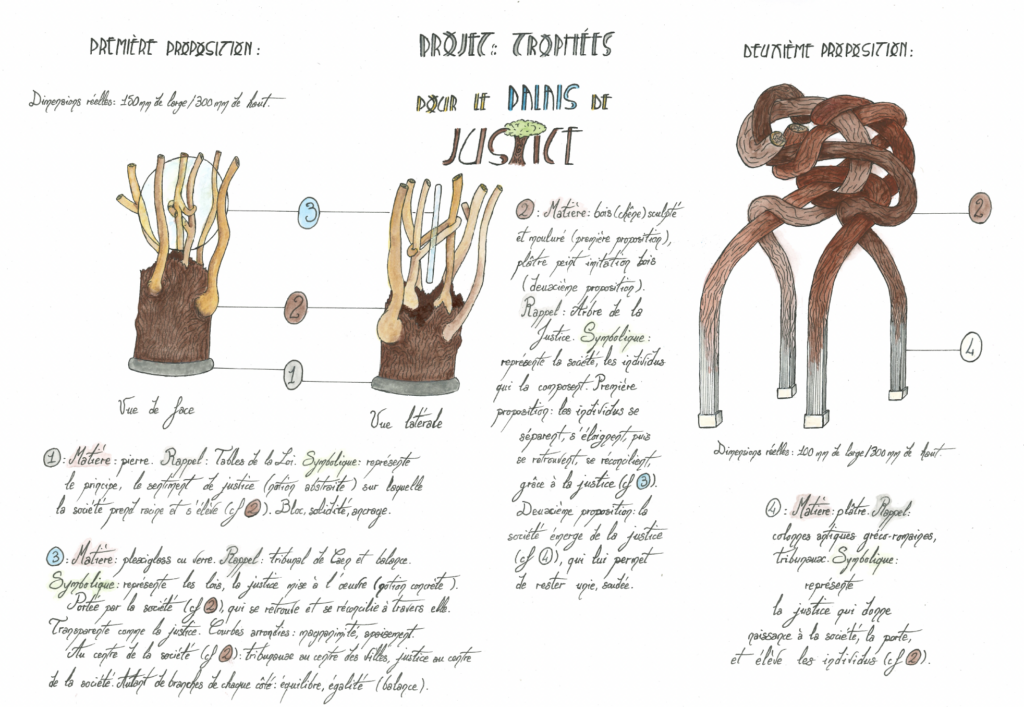 PREMIÈRE PROPOSITION :
Dimensions réelles : 150 mm de large / 300 mm de haut.
PROJET : TROPHÉES
POUR LE PALAIS DE
JUSTICE
DEUXIÈME PROPOSITION :
3
2
1
Vue de face
Vue latérale
1 : Matière : pierre. Rappel : Tables de la Loi. Symbolique : représente
le principe, le sentiment de justice (notion abstraite) sur laquelle
la société prend racine et s'élève (cf 2). Bloc, solidité, ancrage.
3 : Matière : plexiglass ou verre. Rappel : tribunal de Caen et balance.
Symbolique : représente les lois, la justice mise à l'oeuvre (notion concrète).
Portée par la société (cf 2), qui se retrouve et se réconcilie à travers elle.
Transparente comme la justice. Courbes arrondies : magnanimité, apaisement.
Au centre de la société (cf 2) : tribunaux au centre des villes, justice au centre
de la société. Autant de branches de chaque côté : équilibre, égalité (balance).
2 : Matière : bois (chêne) sculpté
et mouluré (première proposition),
plâtre peint imitation bois
(deuxième proposition).
Rappel : Arbre de la
Justice. Symbolique :
représente la société, les individus
qui la composent. Première
proposition : les individus se
séparent, s'éloignent, puis
se retrouvent, se réconcilient,
grâce à la justice (cf 3).
Deuxième proposition : la
société émerge de la justice
(cf 4), qui lui permet
de rester unie, soudée.
2
4
Dimensions réelles : 100 mm de large / 300 mm de haut
4 : Matière : plâtre. Rappel :
colonnes antiques gréco-romaines,
tribunaux. Symbolique :
représente
la justice qui donne
naissance à la société, la porte,
et élève les individus (cf 2).